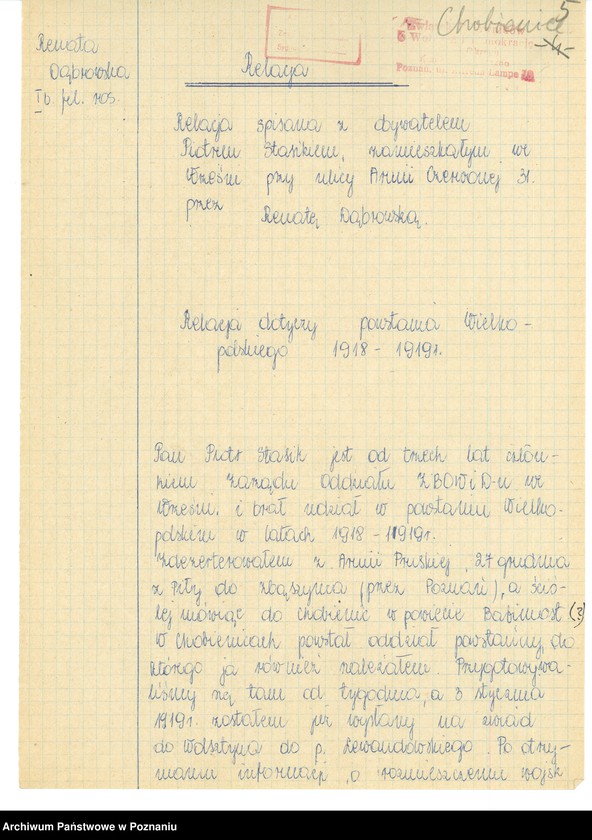 5
Chobienice
Renata
Dąbrowska
I b. fil. ros.
Relacja
Relacja spisana z obywatelem
Piotrem Stasikiem, zamieszkałym we
Wrześni przy ulicy Armii Czerwonej 31.
przez
Renatę Dąbrowską.
Relacja dotyczy powstania Wielko-
polskiego 1918 - 1919r.
Pan Piotr Stasik jest od trzech lat człon-
kiem zarządu oddziału ZBOWiD-u we
Wrześni. i brał udział w powstaniu Wielko-
polskim w latach 1918 - 1919r.
Zdezerterowałem z Armii Pruskiej, 27 grudnia
z Piły do Zbąszynia (przez Poznań), a ściś-
lej mówiąc do Chobienic w powiecie Babimost (3)
W Chobienicach powstał oddział powstańczy, do
którego ja również należałem. Przygotowywa-
liśmy się tam od tygodnia, a 3 stycznia
1919r. zostałem już wysłany na zwiad
do Wolsztyna do p. Lewandowskiego. Po otrzy-
maniu informacji o rozmieszczeniu wojsk
Archiwum Państwowe w Poznaniu